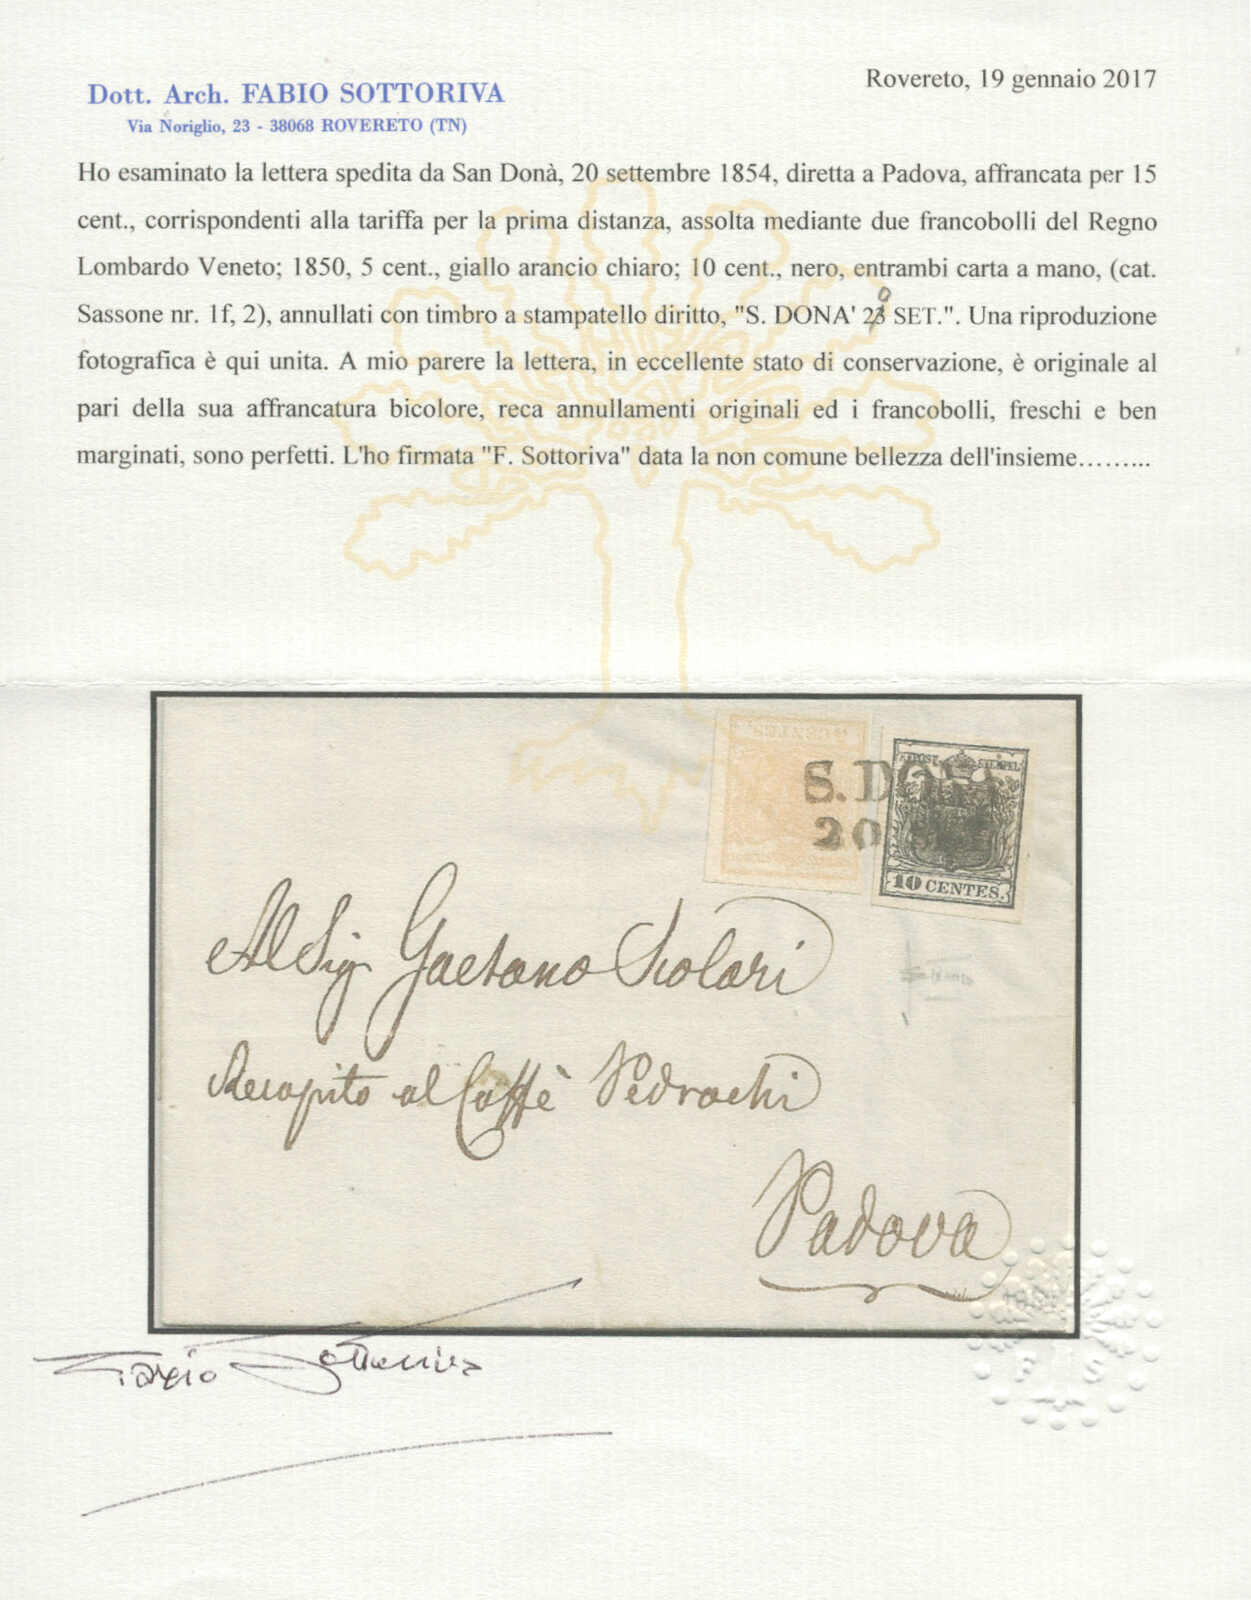 Dott. Arch. FABIO SOTTORIVA
Via Noriglio, 23 - 38068 ROVERETO (TN)
Rovereto, 19 gennaio 2017
Ho esaminato la lettera spedita da San Donà, 20 settembre 1854, diretta a Padova, affrancata per 15
cent., corrispondenti alla tariffa per la prima distanza, assolta mediante due francobolli del Regno
Lombardo Veneto; 1850, 5 cent., giallo arancio chiaro; 10 cent., nero, entrambi carta a mano, (cat.
Sassone nr. 1f, 2), annullati con timbro a stampatello diritto, "S. DONA' 20 SET.". Una riproduzione
fotografica è qui unita. A mio parere la lettera, in eccellente stato di conservazione, è originale al
pari della sua affrancatura bicolore, reca annullamenti originali ed i francobolli, freschi e ben
marginati, sono perfetti. L'ho firmata "F. Sottoriva" data la non comune bellezza dell'insieme.........
CENTES.
KPOST STEMPEL
S.DONA
20
10 CENTES.
Al Sig Gaetano Scolari
Recapito al Caffè Pedrochi
Padova
Fabio Sottoriva
F S